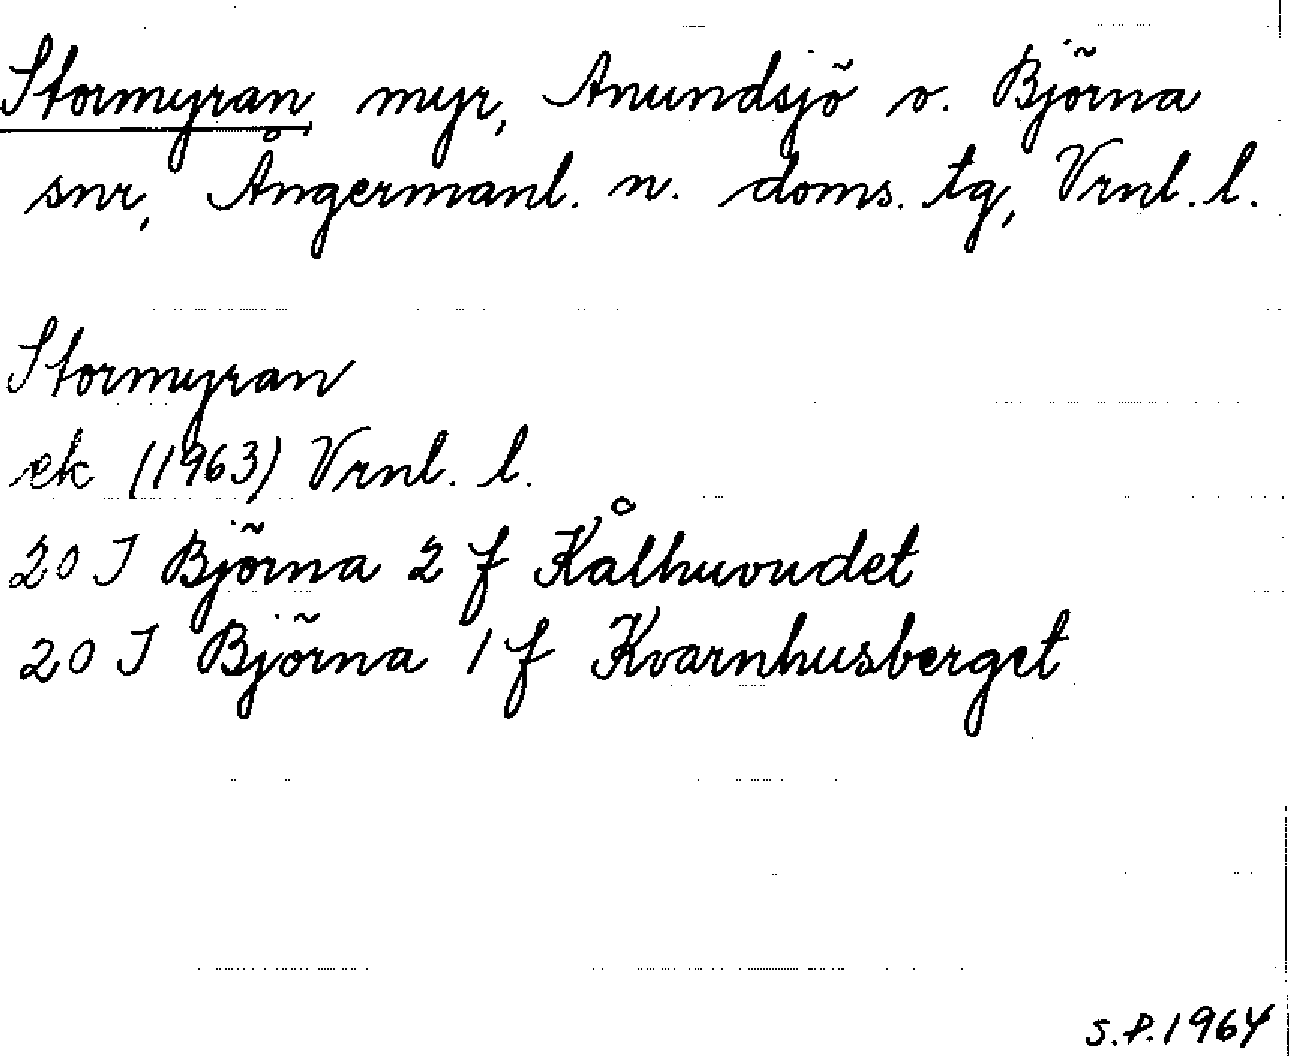 Stormyran myr, Anundsjö o. Björna
snr, Ångermanl. n. doms. tg, Vrnl. l.
Stormyran
ek (1963) Vrnl. l.
20 J Björna 2 f Kålhuvudet
20 J Björna 1 f Kvarnhusberget
S.P. 1964